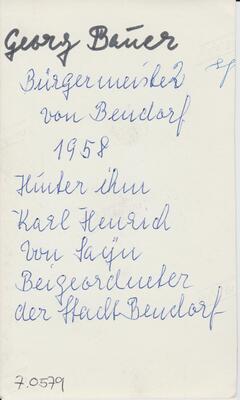 Georg Bauer
Bürgermeister
von Bendorf
1958
Hinter ihm
Karl Henrich
von Sayn
Beigeordneter
der Stadt Bendorf
7.0579